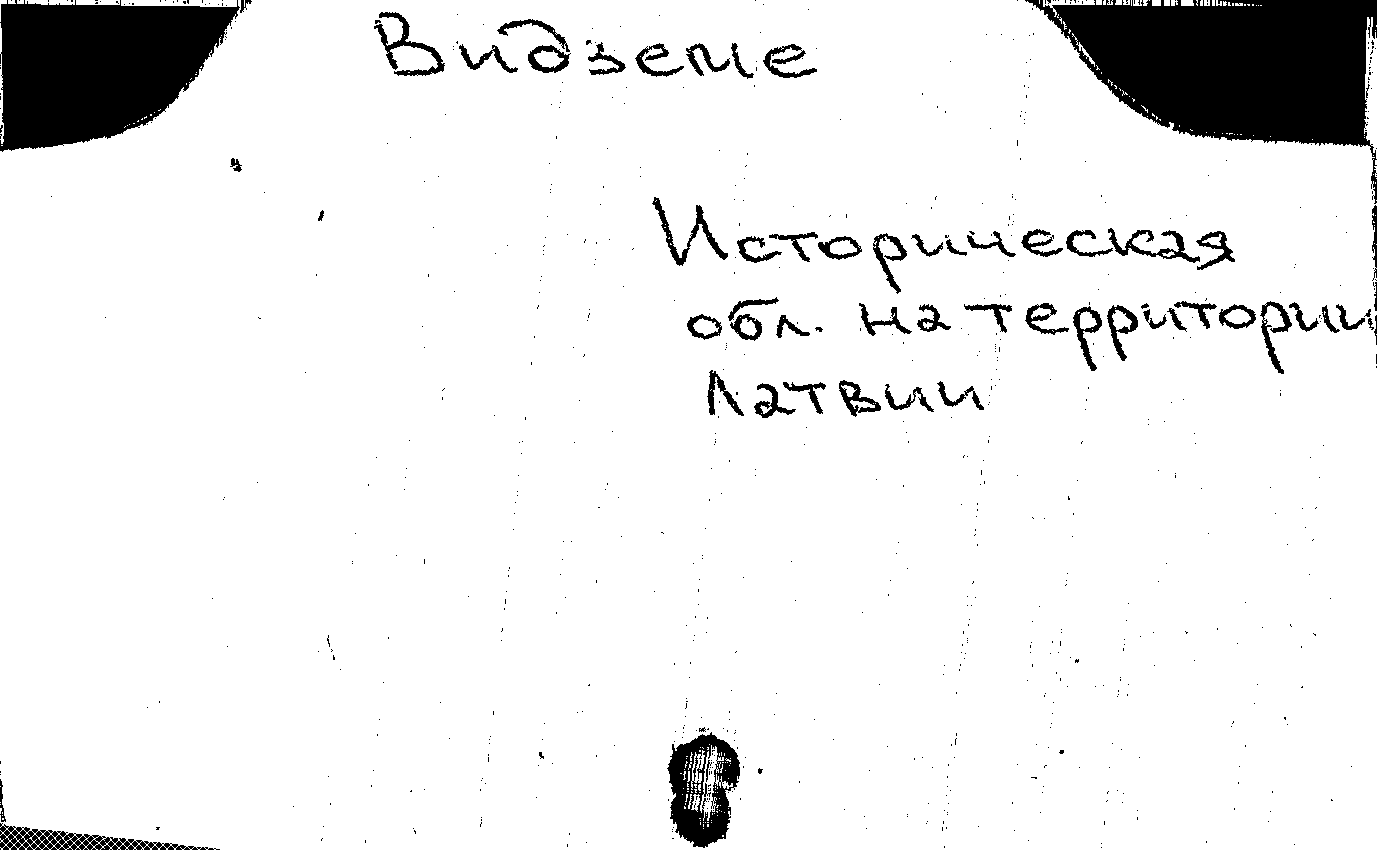 Видземе
Историческая
обл. на территории
Латвии